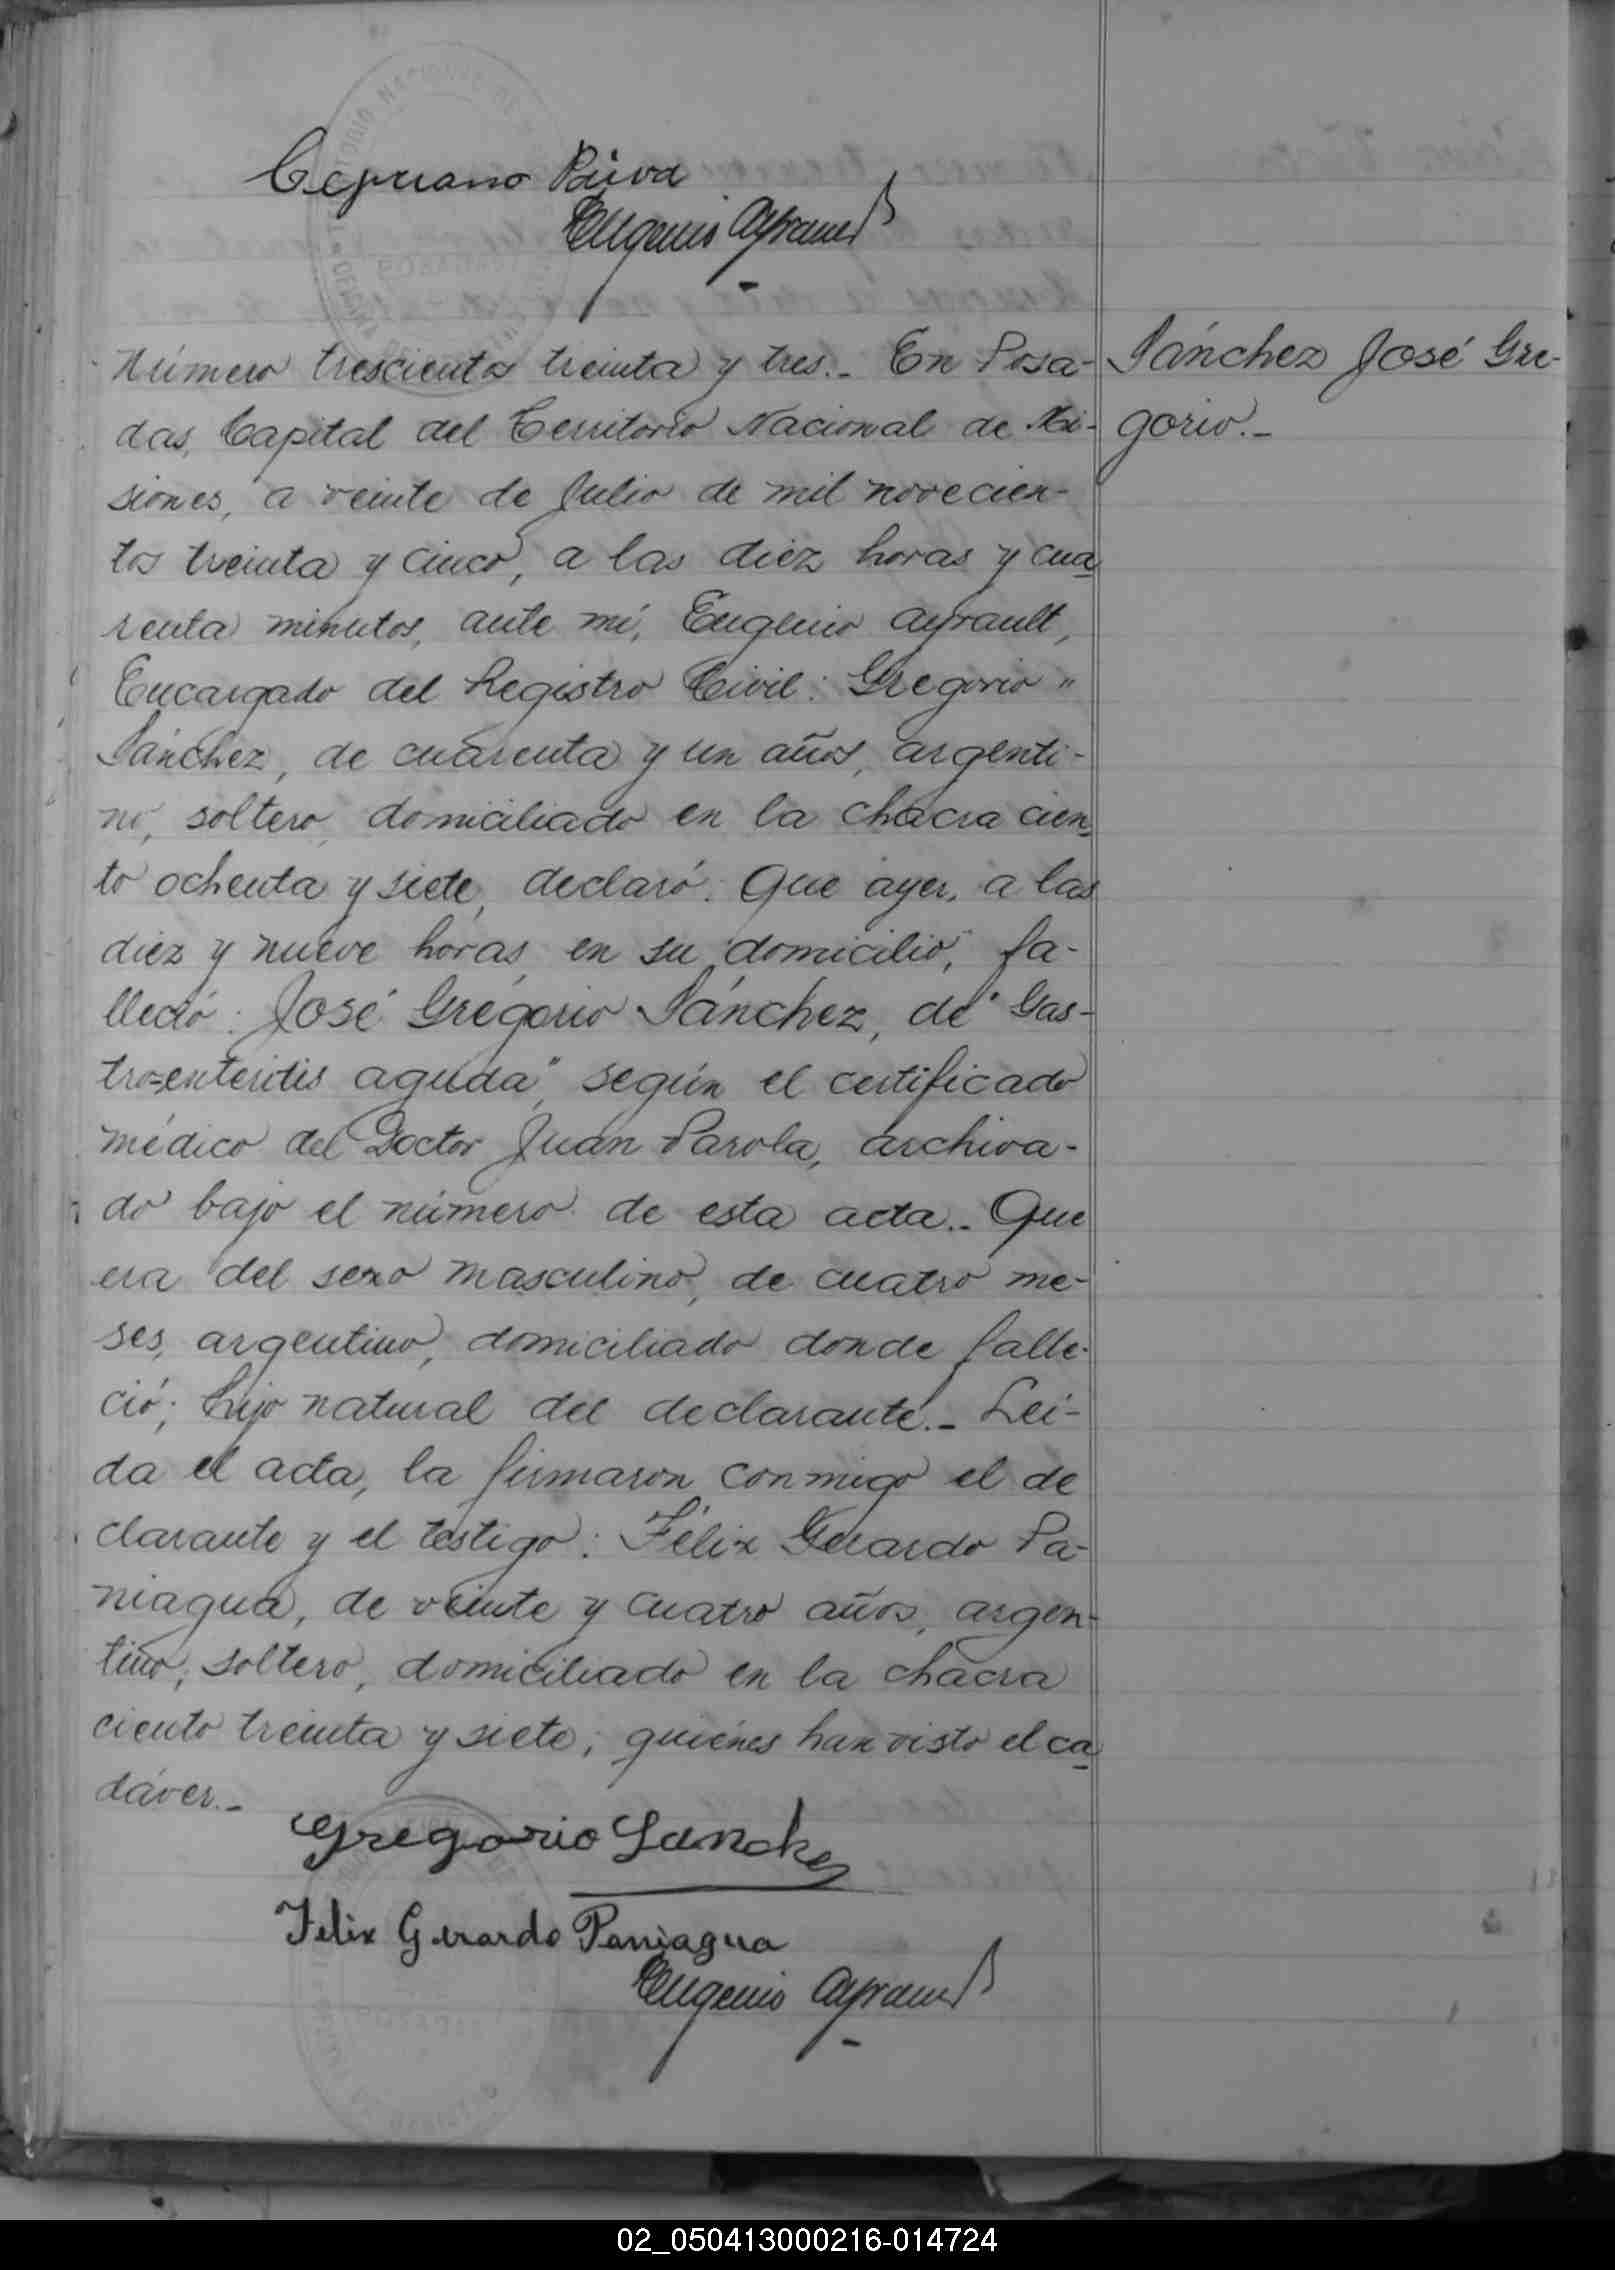 Cipriano Paiva
Eugenio Ayrault
Sánchez José Gre-
gorio.-
Número trescientos treinta y tres.- En Posa-
das, Capital del Territorio Nacional de Mi-
siones, a veinte de Julio de mil novecien-
tos treinta y cinco, a las diez horas y cua
renta minutos, ante mí, Eugenio Ayrault,
Encargado del Registro Civil: Gregorio "
Sánchez, de cuarenta y un años, argenti-
no, soltero, domiciliado en la chacra cien
to ochenta y siete, declaró: Que ayer, a las
diez y nueve horas, en su domicilio, fa-
lleció: José Gregorio Sánchez, de "Gas-
tro-enteritis aguda", según el certificado
médico del Doctor Juan Parola, archiva-
do bajo el número de esta acta.- Que
era del sexo masculino, de cuatro me-
ses, argentino, domiciliado donde falle-
ció; hijo natural del declarante.- Leí-
da el acta, la firmaron conmigo el de
clarante y el testigo: Félix Gerardo Pa-
niagua, de veinte y cuatro años, argen-
tino, soltero, domiciliado en la chacra
ciento treinta y siete; quiénes han visto el ca
dáver.-
Gregorio Sanchez
Felix Gerardo Paniagua
Eugenio Ayrault
02_050413000216-014724